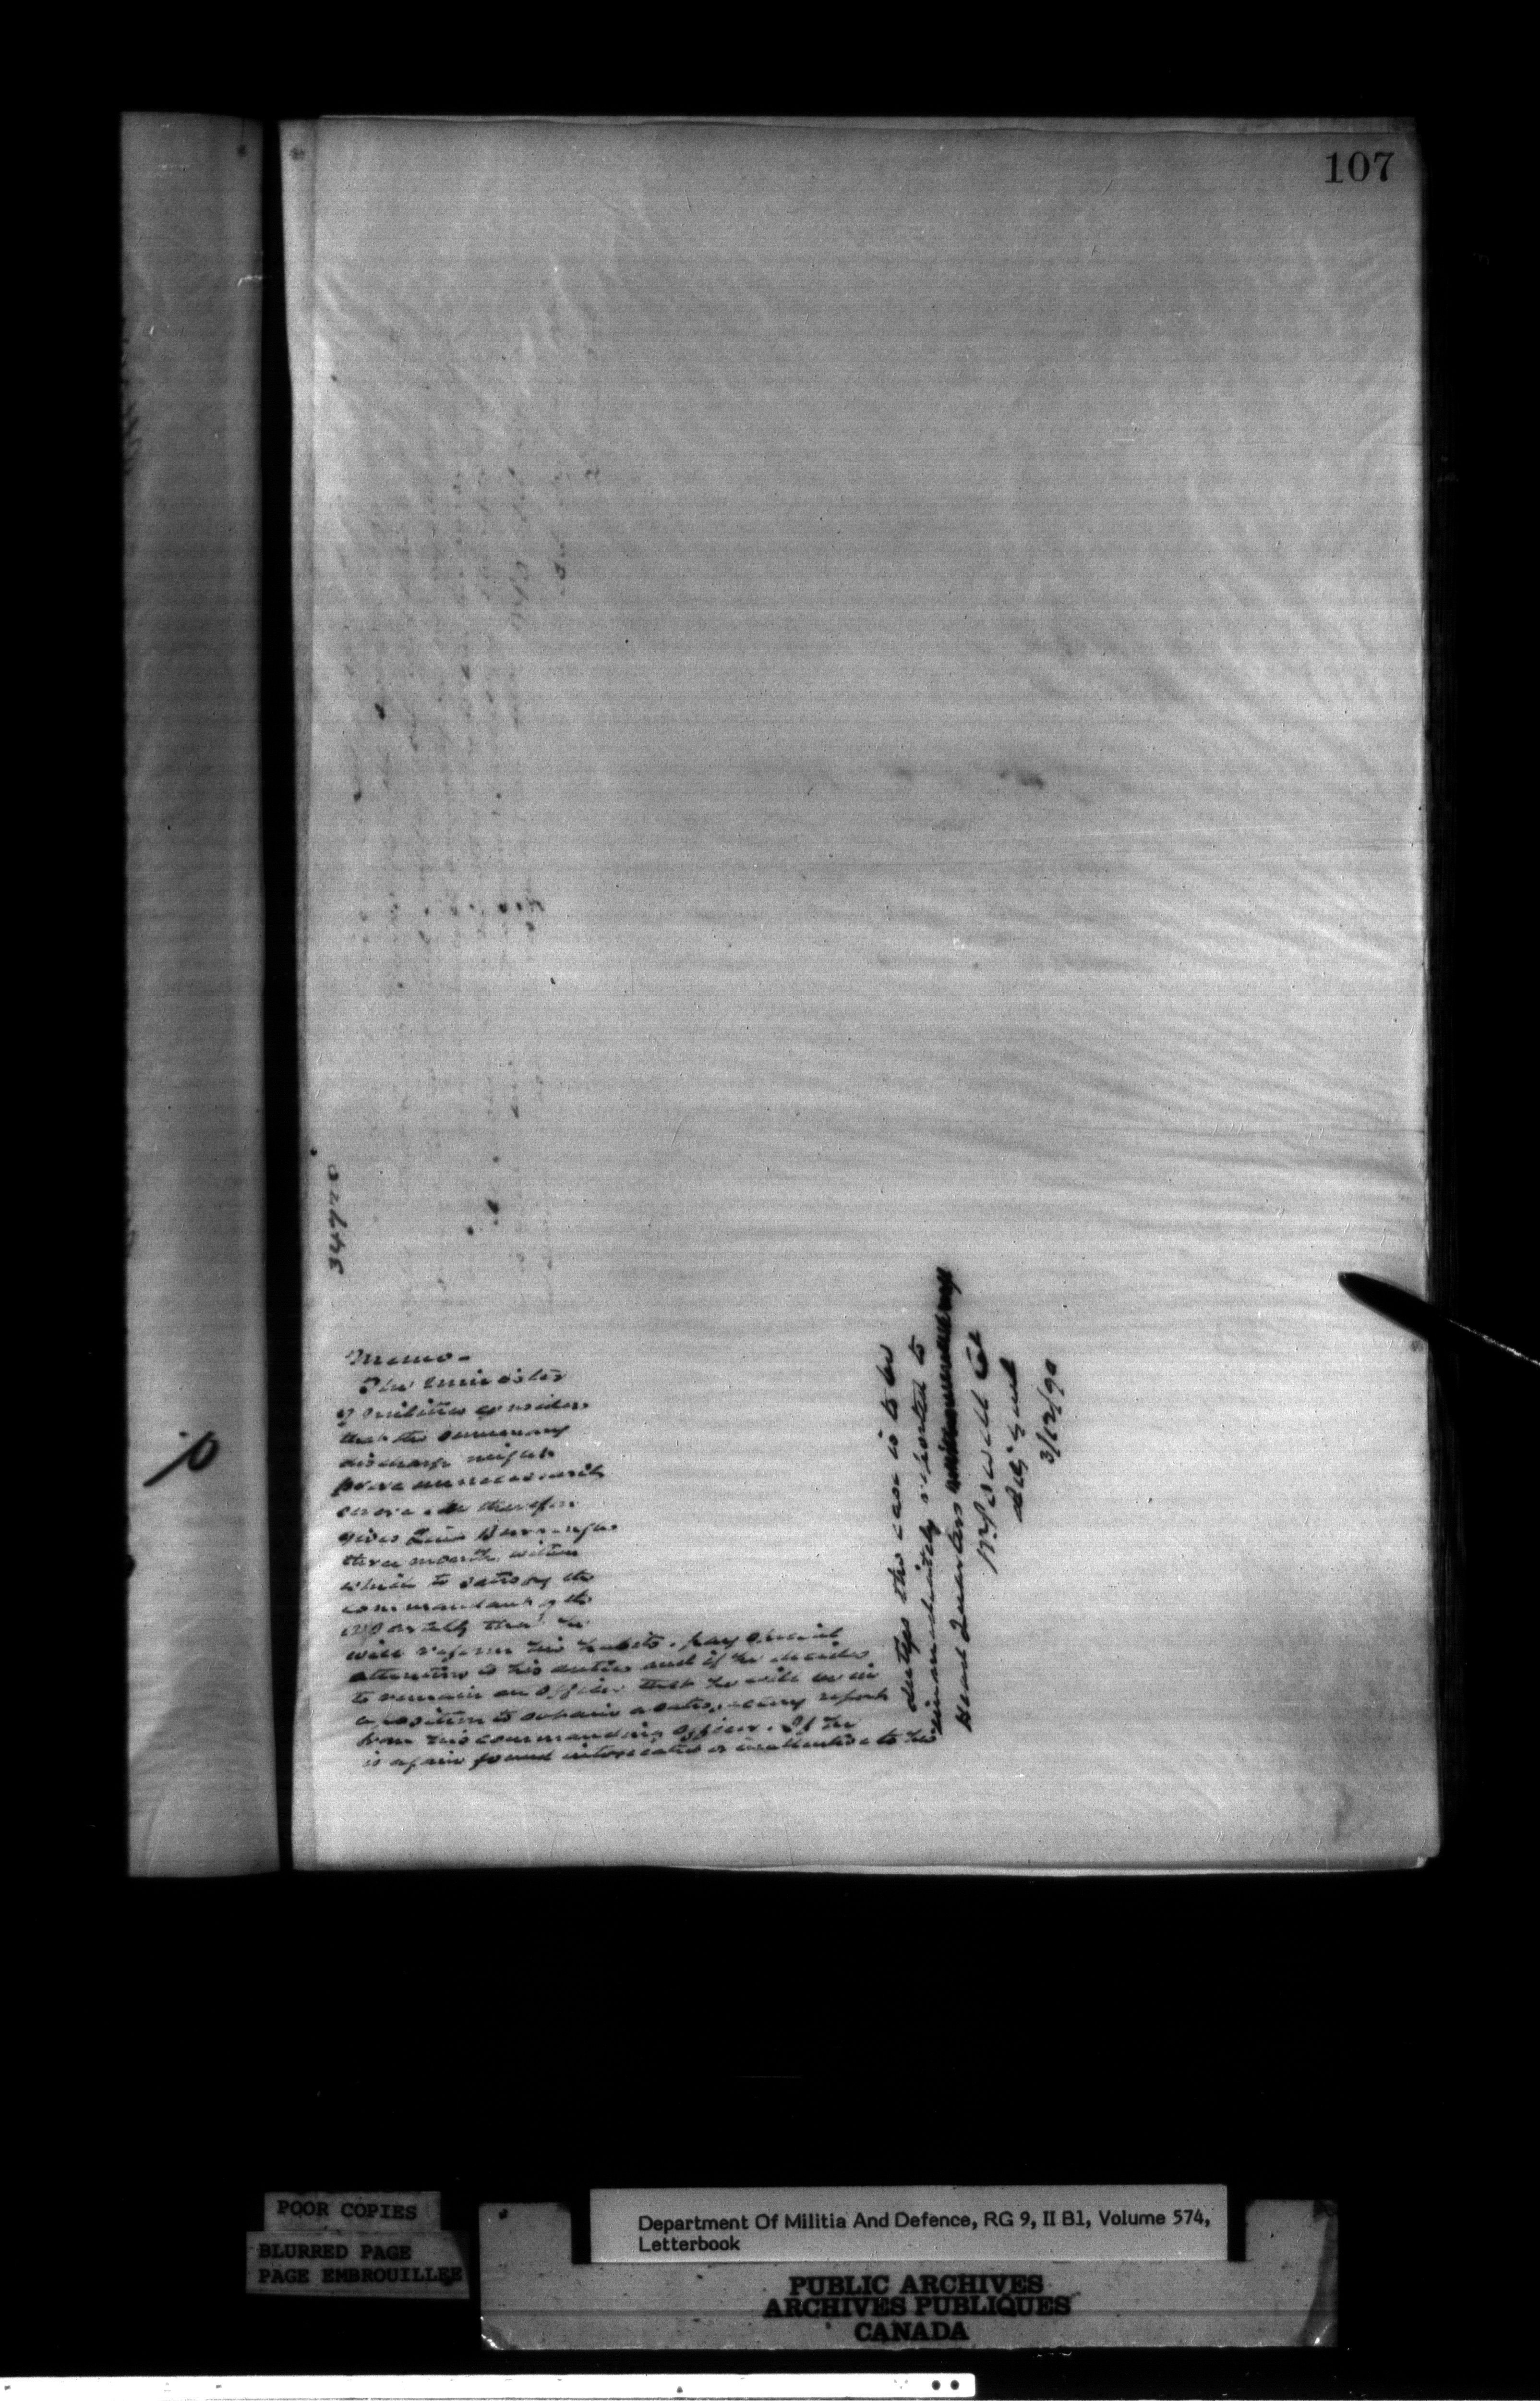 107
54920
Memo -
The Minister
of Militia considers
that the summary
discharge might
prove unnecessarily
severe. He therefore
gives Lieut
three months within
which to satisfy the
commandant of the
that he
will reform his habits, pay special
attention to his duties and if he decides
to remain an officer that he will be in
a position to obtain a satisfactory report
from his commanding officer. If he
is again found intoxicated or inattentive to his
duties the case is to be
immediately reported to
Head Quarters
Powell Col
Adj. Genl
3/12/90
POOR COPIES
BLURRED PAGE
PAGE EMBROUILLEE
Department Of Militia And Defence, RG 9, II B1, Volume 574,
Letterbook
PUBLIC ARCHIVES
ARCHIVES PUBLIQUES
CANADA